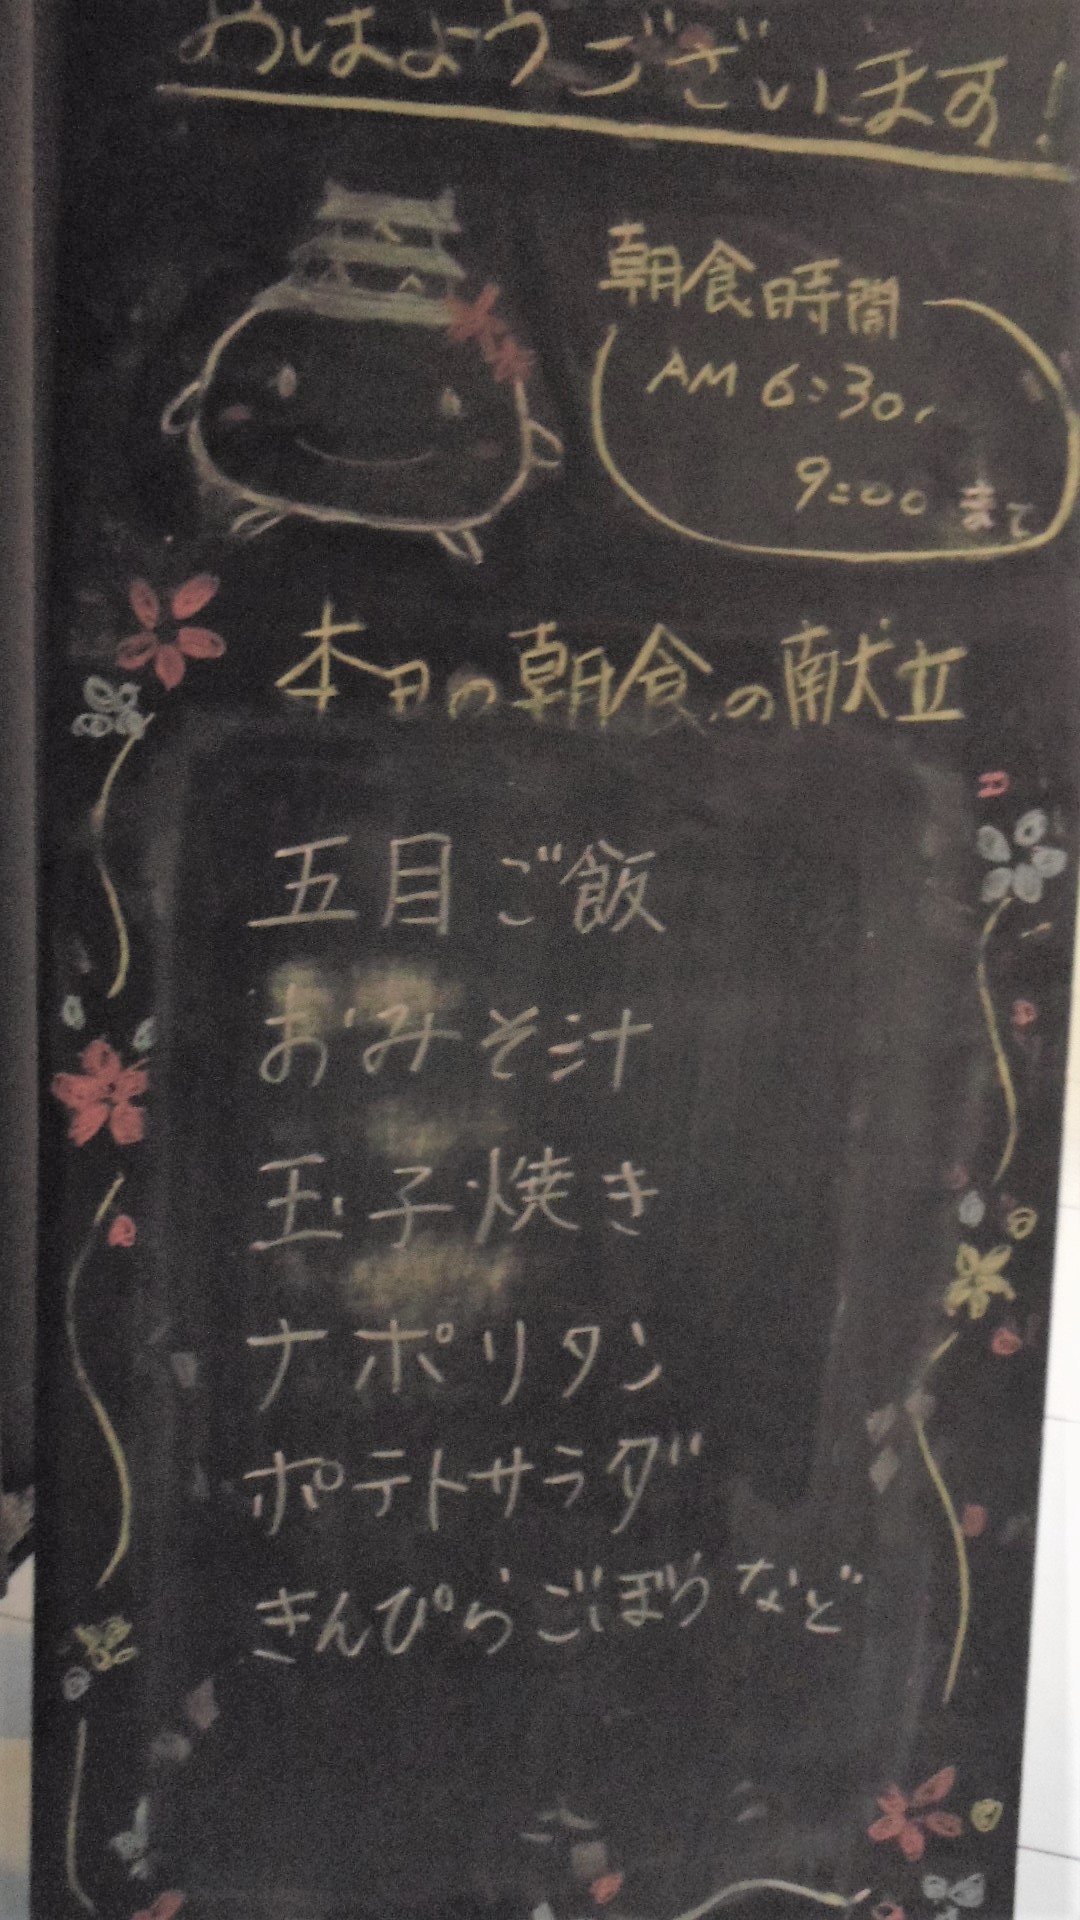 おはようございます!
朝食時間
AM 6:30~
9:00 まで
本日の朝食の献立
五目ご飯
おみそ汁
玉子焼き
ナポリタン
ポテトサラダ
きんぴらごぼうなど